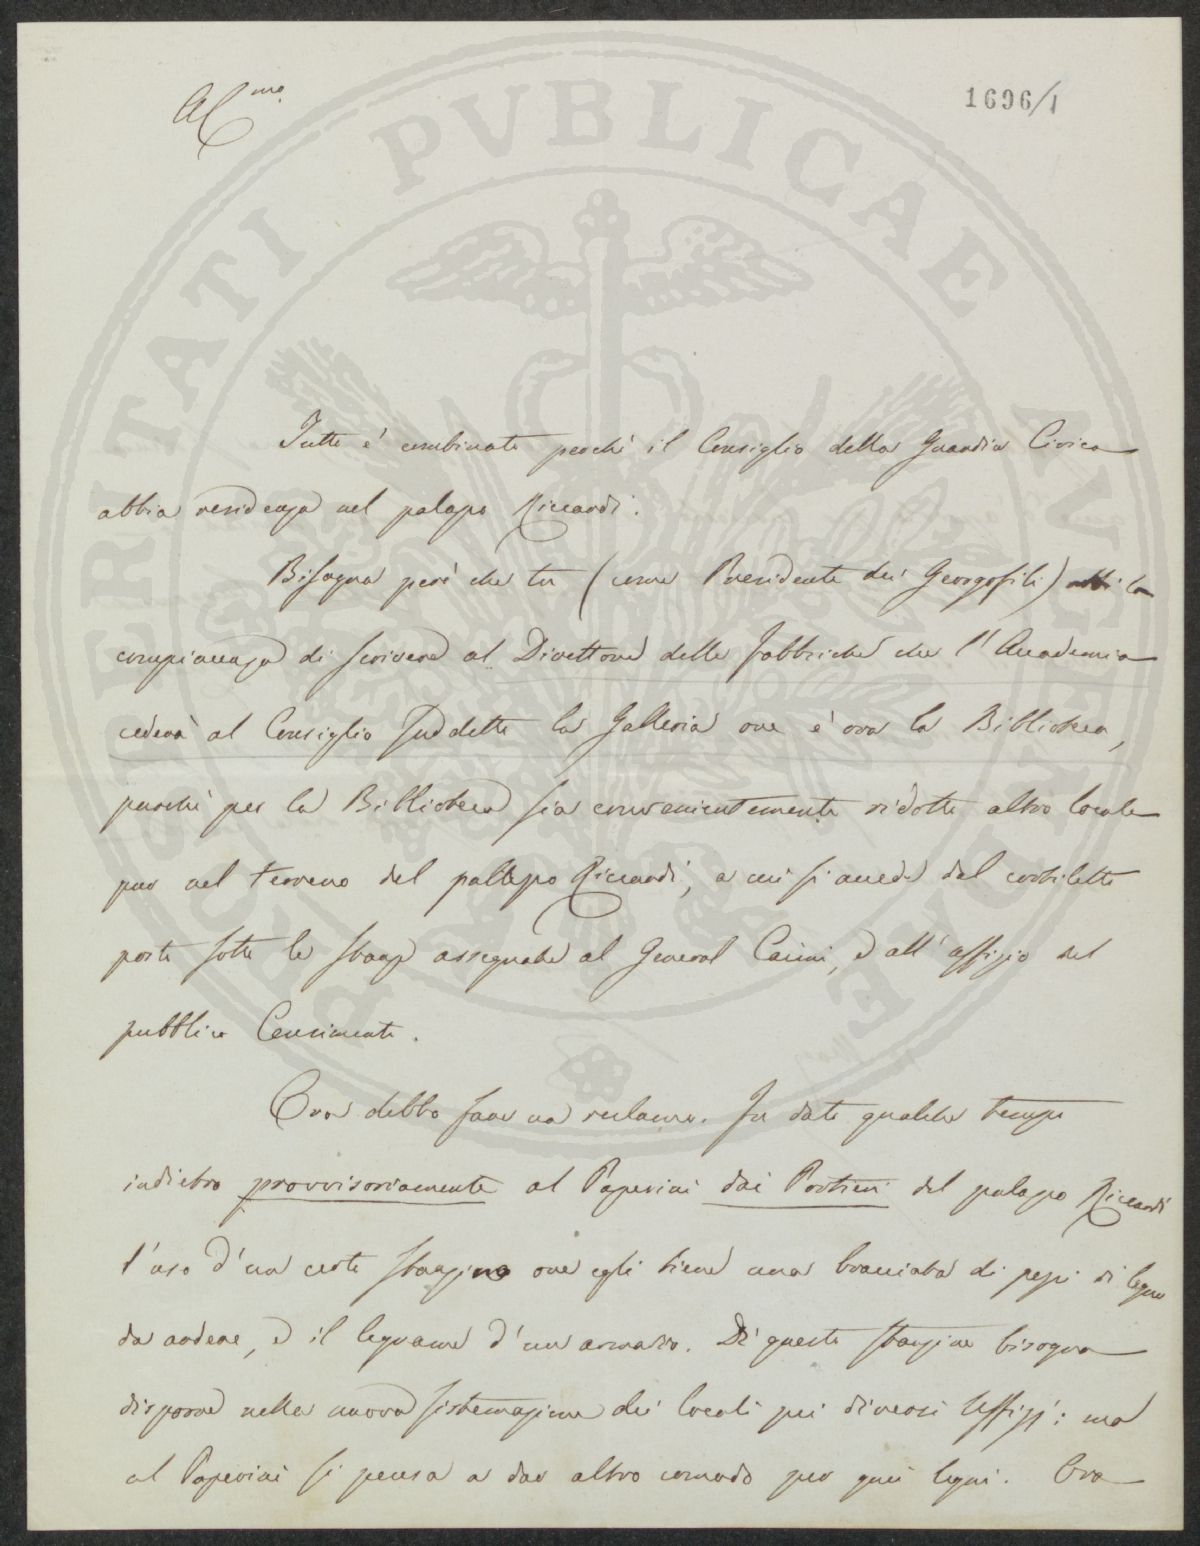 1696/1
C.mo
Tutto è combinato perchè il Consiglio della Guardia Civica
abbia residenza nel palazzo Riccardi.
Bisogna però che tu (come Presidente dei Georgofili) abbi la
compiacenza di scrivere al Direttore delle fabbriche che l'Accademia
cederà al Consiglio suddetto la Galleria ove è ora la Biblioteca,
purchè per la Biblioteca sia convenientemente ridotto altro locale
pur nel terreno del palazzo Riccardi, a cui si accede dal cortiletto
posto sotto le stanze assegnate al General Caimi, e all'uffizio del
pubblico Censimento.
Ora debbo fare un reclamo. Fu dato qualche tempo
indietro provvisoriamente al Paperini dai Portieri del palazzo Riccardi
l'uso d'un certo stanzino ove egli tiene una bracciata di pezzi di legno
da ardere, e il legname d'un armadio. Di questo stanzino bisogna
disporre nella nuova sistemazione dei locali pei diversi Uffizj: ma
al Paperini si pensa a dar altro comodo per quei legni. Ora
PROSPERITATI PVBLICAE AVGENDAE